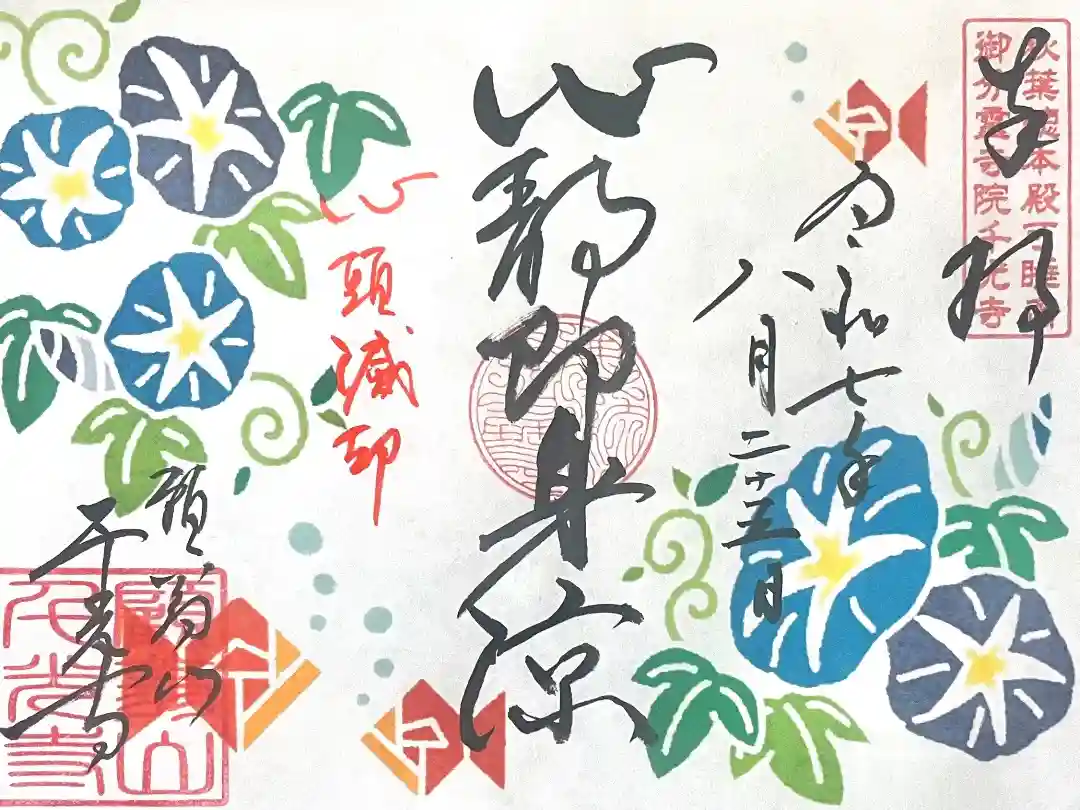 秋葉總本殿可睡斎
御分靈寺院千光寺
奉拝
令和七年
八月二十五日
心静即身涼
心頭滅却
千光寺